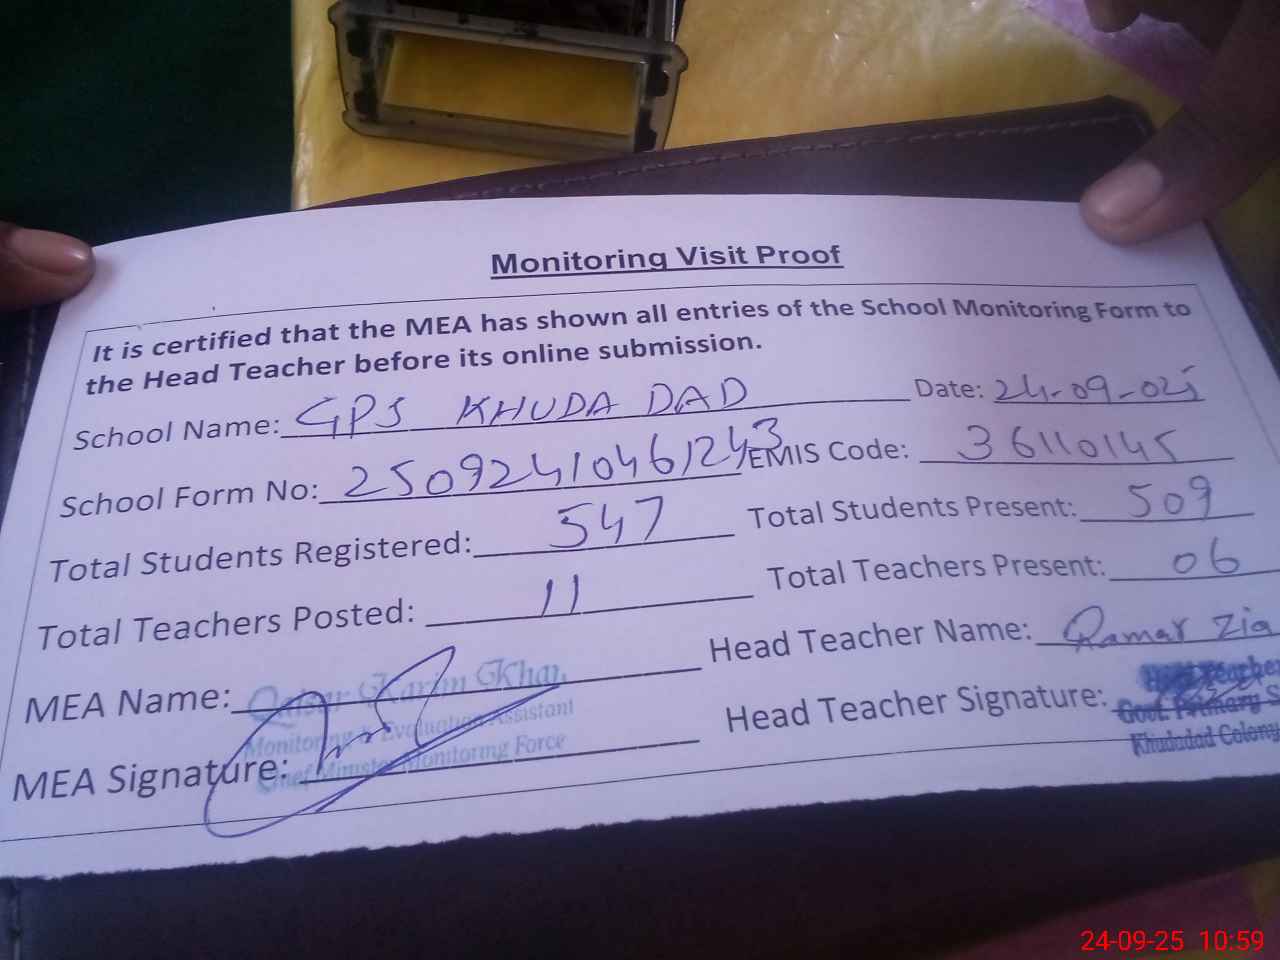 Monitoring Visit Proof
It is certified that the MEA has shown all entries of the School Monitoring Form to
the Head Teacher before its online submission.
School Name: GPS KHUDA DAD Date: 24-09-025
School Form No: 25092410461243 EMIS Code: 36110145
Total Students Registered: 547 Total Students Present: 509
Total Teachers Posted: 11 Total Teachers Present: 06
MEA Name: Qaisar Karim Khan Head Teacher Name: Qamar Zia
Monitoring & Evaluation Assistant
MEA Signature: Chief Minister Monitoring Force Head Teacher Signature:
Head Teacher
Govt. Primary S
Khudadad Colony
24-09-25 10:59